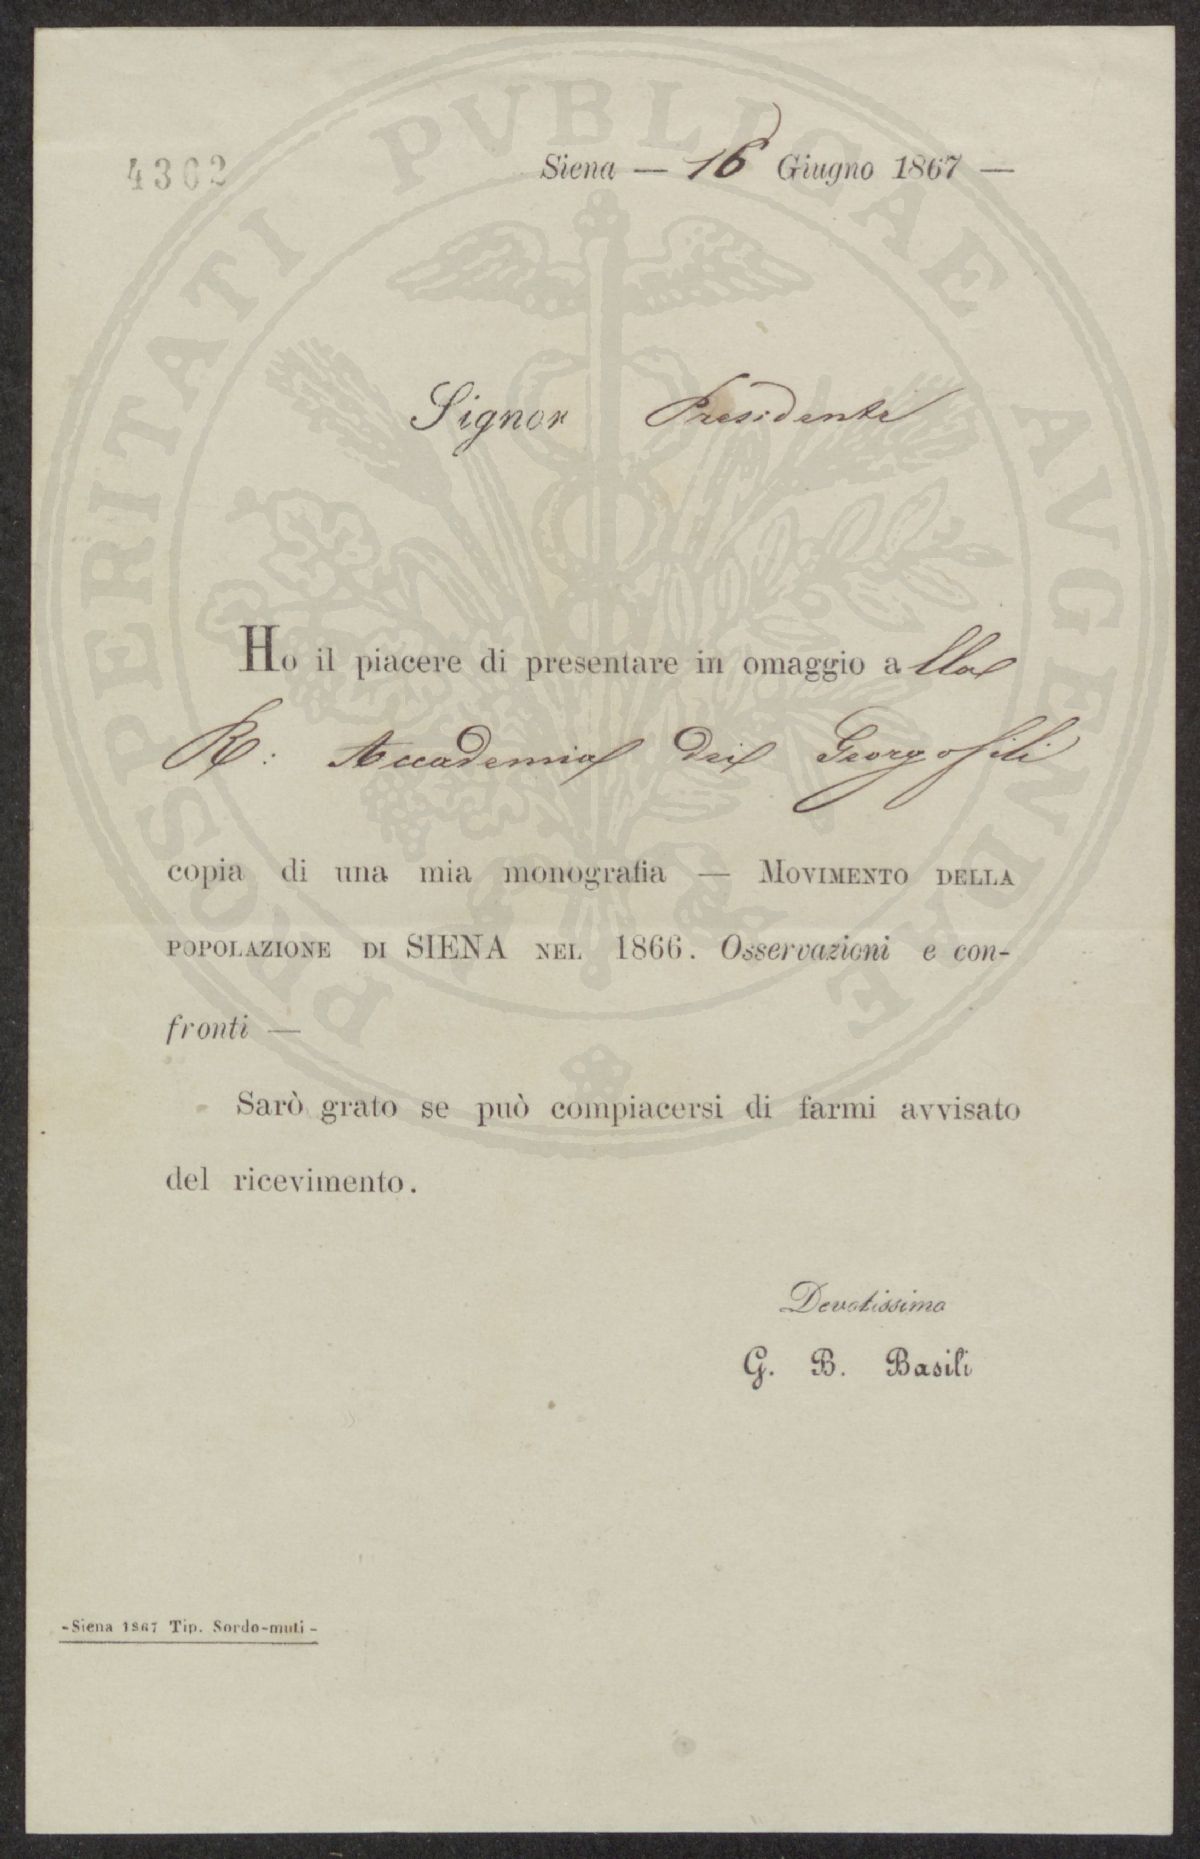 4302
Siena — 16 Giugno 1867 —
Signor Presidente
Ho il piacere di presentare in omaggio alla
R: Accademia dei Georgofili
copia di una mia monografia — MOVIMENTO DELLA
POPOLAZIONE DI SIENA NEL 1866. Osservazioni e con-
fronti —
Sarò grato se può compiacersi di farmi avvisato
del ricevimento.
Devotissimo
G. B. Basili
-Siena 1867 Tip. Sordo-muti-
PROSPERITATI PVBLICAE AVGENDAE